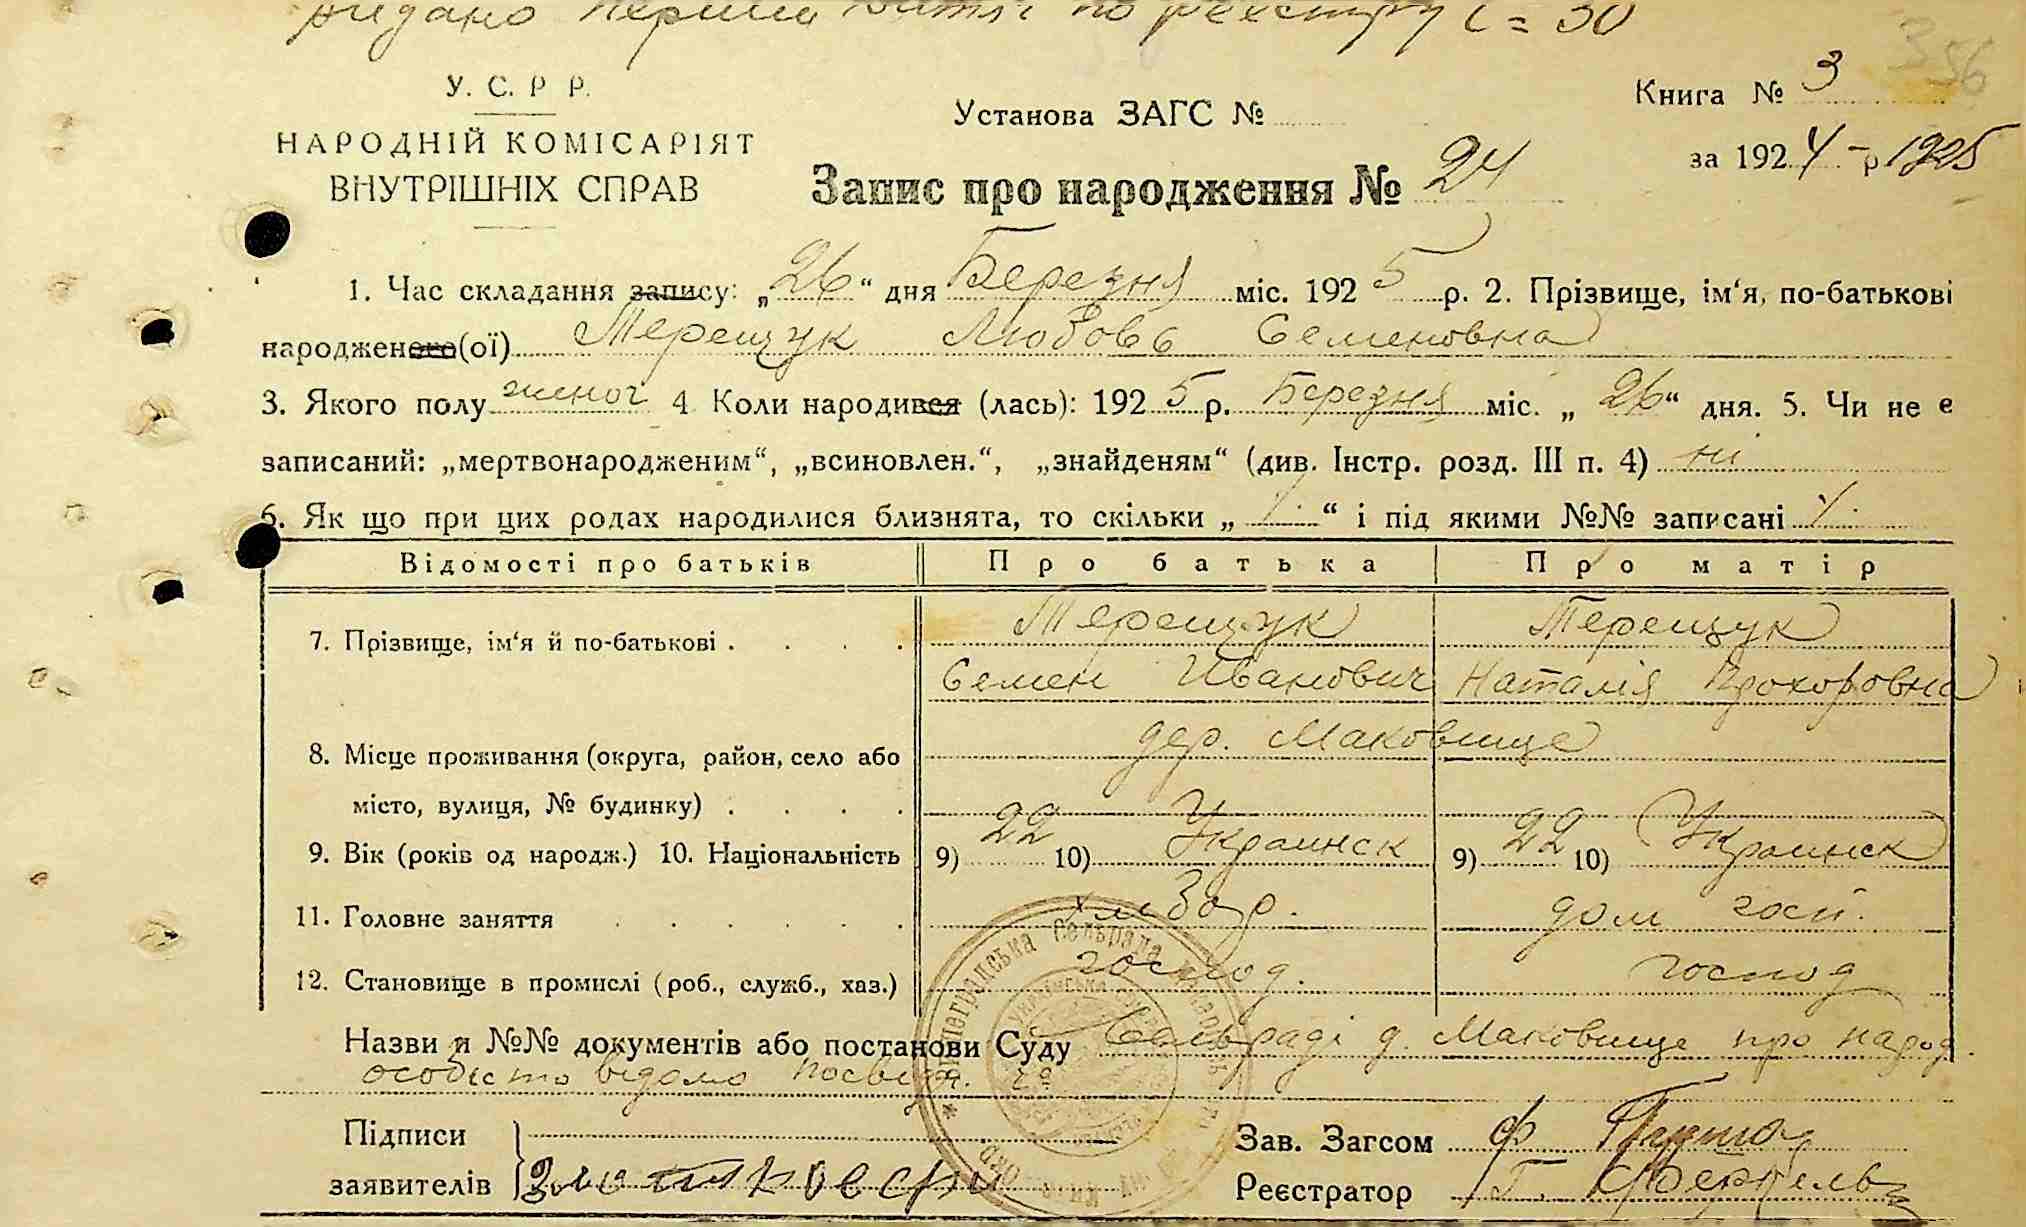 видано по реєстру 30
356
У. С. Р Р.
НАРОДНІЙ КОМІСАРІЯТ
ВНУТРІШНІХ СПРАВ
Установа ЗАГС №
Книга № 3
за 1924 - р 1925
Запис про народження № 24
1. Час складання запису: „26“ дня Березня міс. 1925 р. 2. Прізвище, ім‘я, по-батькові
народженого(ої) Терещук Любовь Семеновна
3. Якого полу жіноч 4 Коли народився (лась): 1925 р. Березня міс. „26“ дня. 5. Чи не є
записаний: „мертвонародженим“, „всиновлен.“, „знайденям“ (див. Інстр. розд. III п. 4) ні
6. Як що при цих родах народилися близнята, то скільки „ “ і під якими №№ записані
Відомості про батьків Про батька Про матір
7. Прізвище, ім‘я й по-батькові . . . . Терещук Терещук
Семен Иванович Наталія Прохоровна
8. Місце проживання (округа, район, село або дер. Маковище
місто, вулиця, № будинку) . . . .
9. Вік (років од народж.) 10. Національність 9) 22 10) Украинск 9) 22 10) Украинск
11. Головне заняття . . . . . . хлібор. дом госп.
12. Становище в промислі (роб., служб., хаз.) господ. господ
Назви й №№ документів або постанови Суду Сельраді д. Маковище про народ.
особисто відомо посвідч.
Підписи
заявителів
Зав. Загсом Ф.
Реєстратор Г.